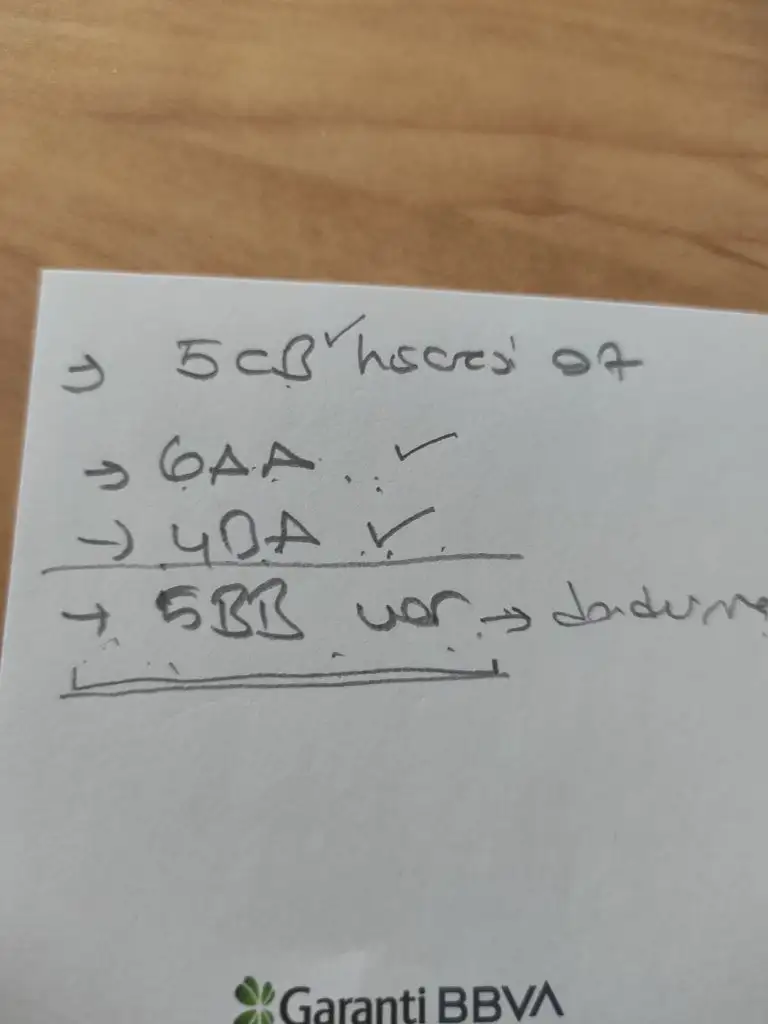 → 5CB ✓ hscresi 07
→ 6AA .. ✓
→ 4DA ✓
→ 5BB var. →
Garanti BBVA